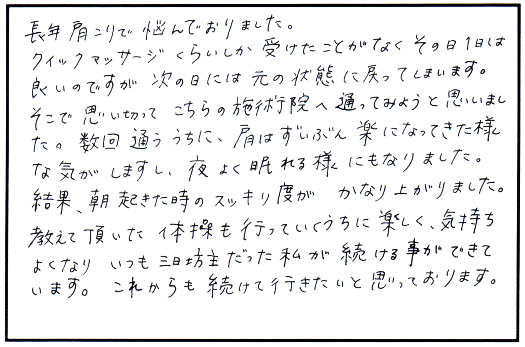 長年肩こりで悩んでおりました。
クイックマッサージくらいしか受けたことがなくその日1日は
良いのですが次の日には元の状態に戻ってしまいます。
そこで思い切ってこちらの施術院へ通ってみようと思いまし
たの数回通ううちに、肩はずいぶん楽になってきた様
な気がしますし、夜よく眠れる様にもなりました。
結果、朝起きた時のスッキリ度がかなり上がりました。
教えて頂いた体操も行っていくうちに楽しく、気持ち
よくなりいつも三日坊主だった私が続ける事ができて
います。これからも続けて行きたいと思っております。